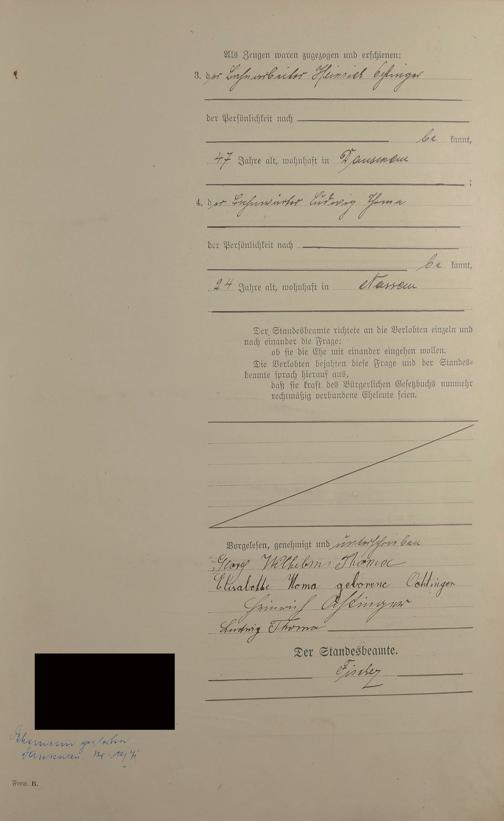 Als Zeugen waren zugezogen und erschienen:
3. der Bahnarbeiter Heinrich
der Persönlichkeit nach
be kannt,
47 Jahre alt, wohnhaft in Dausenau
;
4. der Bahnwärter Ludwig Thoma
der Persönlichkeit nach
be kannt,
24 Jahre alt, wohnhaft in Nassau
Der Standesbeamte richtete an die Verlobten einzeln und
nach einander die Frage:
ob sie die Ehe mit einander eingehen wollen.
Die Verlobten bejahten diese Frage und der Standes-
beamte sprach hierauf aus,
daß sie kraft des Bürgerlichen Gesetzbuchs nunmehr
rechtmäßig verbundene Eheleute seien.
Vorgelesen, genehmigt und unterschrieben
Wilhelm Thoma
Thoma geborene
Heinrich
Ludwig Thoma
Der Standesbeamte.
Ehemann gestorben
Form. B.